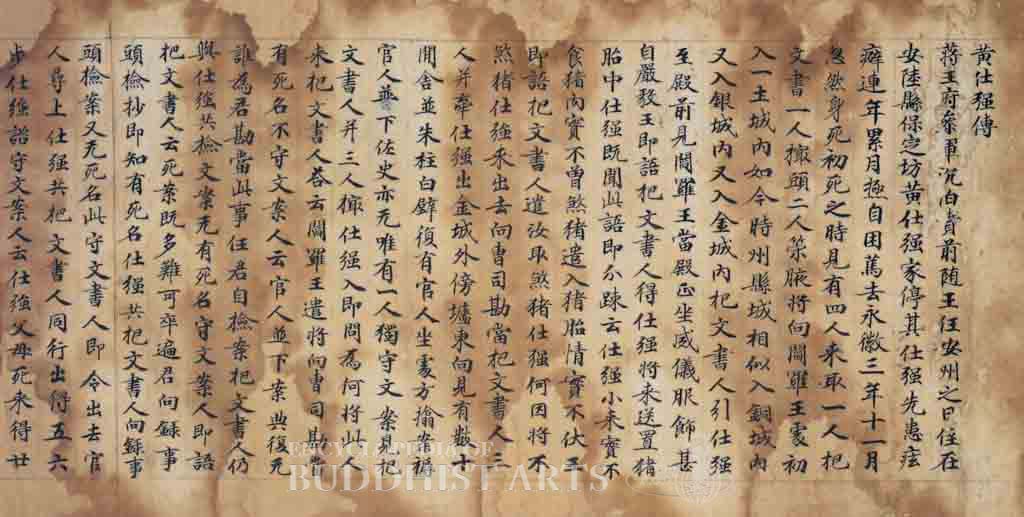 黄仕强傳
蔣王府叅軍沈伯賁前随王任安州之日住在
安陸縣保定坊黄仕强家停其仕强先患痃
癖連年累月極自困篤去永徽三年十一月
忽然身死初死之時見有四人来取一人把
文書一人撮頭二人策腋将向閻羅王處初
入一土城内如今時州縣城相似入銅城内
又入銀城内又入金城内把文書人引仕强
至殿前見閻羅王當殿正坐威儀服飾甚
自嚴敎王即語把文書人得仕强将来送置猪
胎中仕强既聞此語即分踈云仕强小来實不
食猪肉實不曽煞猪遣入猪胎情實不伏王
即語把文書人遣汝取煞猪仕强何因将不
煞猪仕强来出去向曹司勘當把文書人三
人并牽仕强出金城外傍壚東向見有數十
間舍並朱柱白壁復有官人坐處方揄案褥
官人並下佐史亦无唯有一人獨守文案見把
文書人并三人仕强入即問為何将此人
来把文書人荅云閻羅王遣将向曹司勘
有死名不守文案人云官人並下案典復无
誰為君勘當此事任君自檢案把文書人仍
與仕强共檢文案无有死名守文案人即語
把文書人云死案既多難可卒遍君向録事
頭檢抄即知有死名仕强共把文書人向録事
頭檢案又无死名此守文書人即令出去官
人尋上仕强共把文書人同行出得五六
步仕强諮守文案人云仕强父母死来得廿
ENCYCLOPEDIA OF
BUDDHIST ARTS